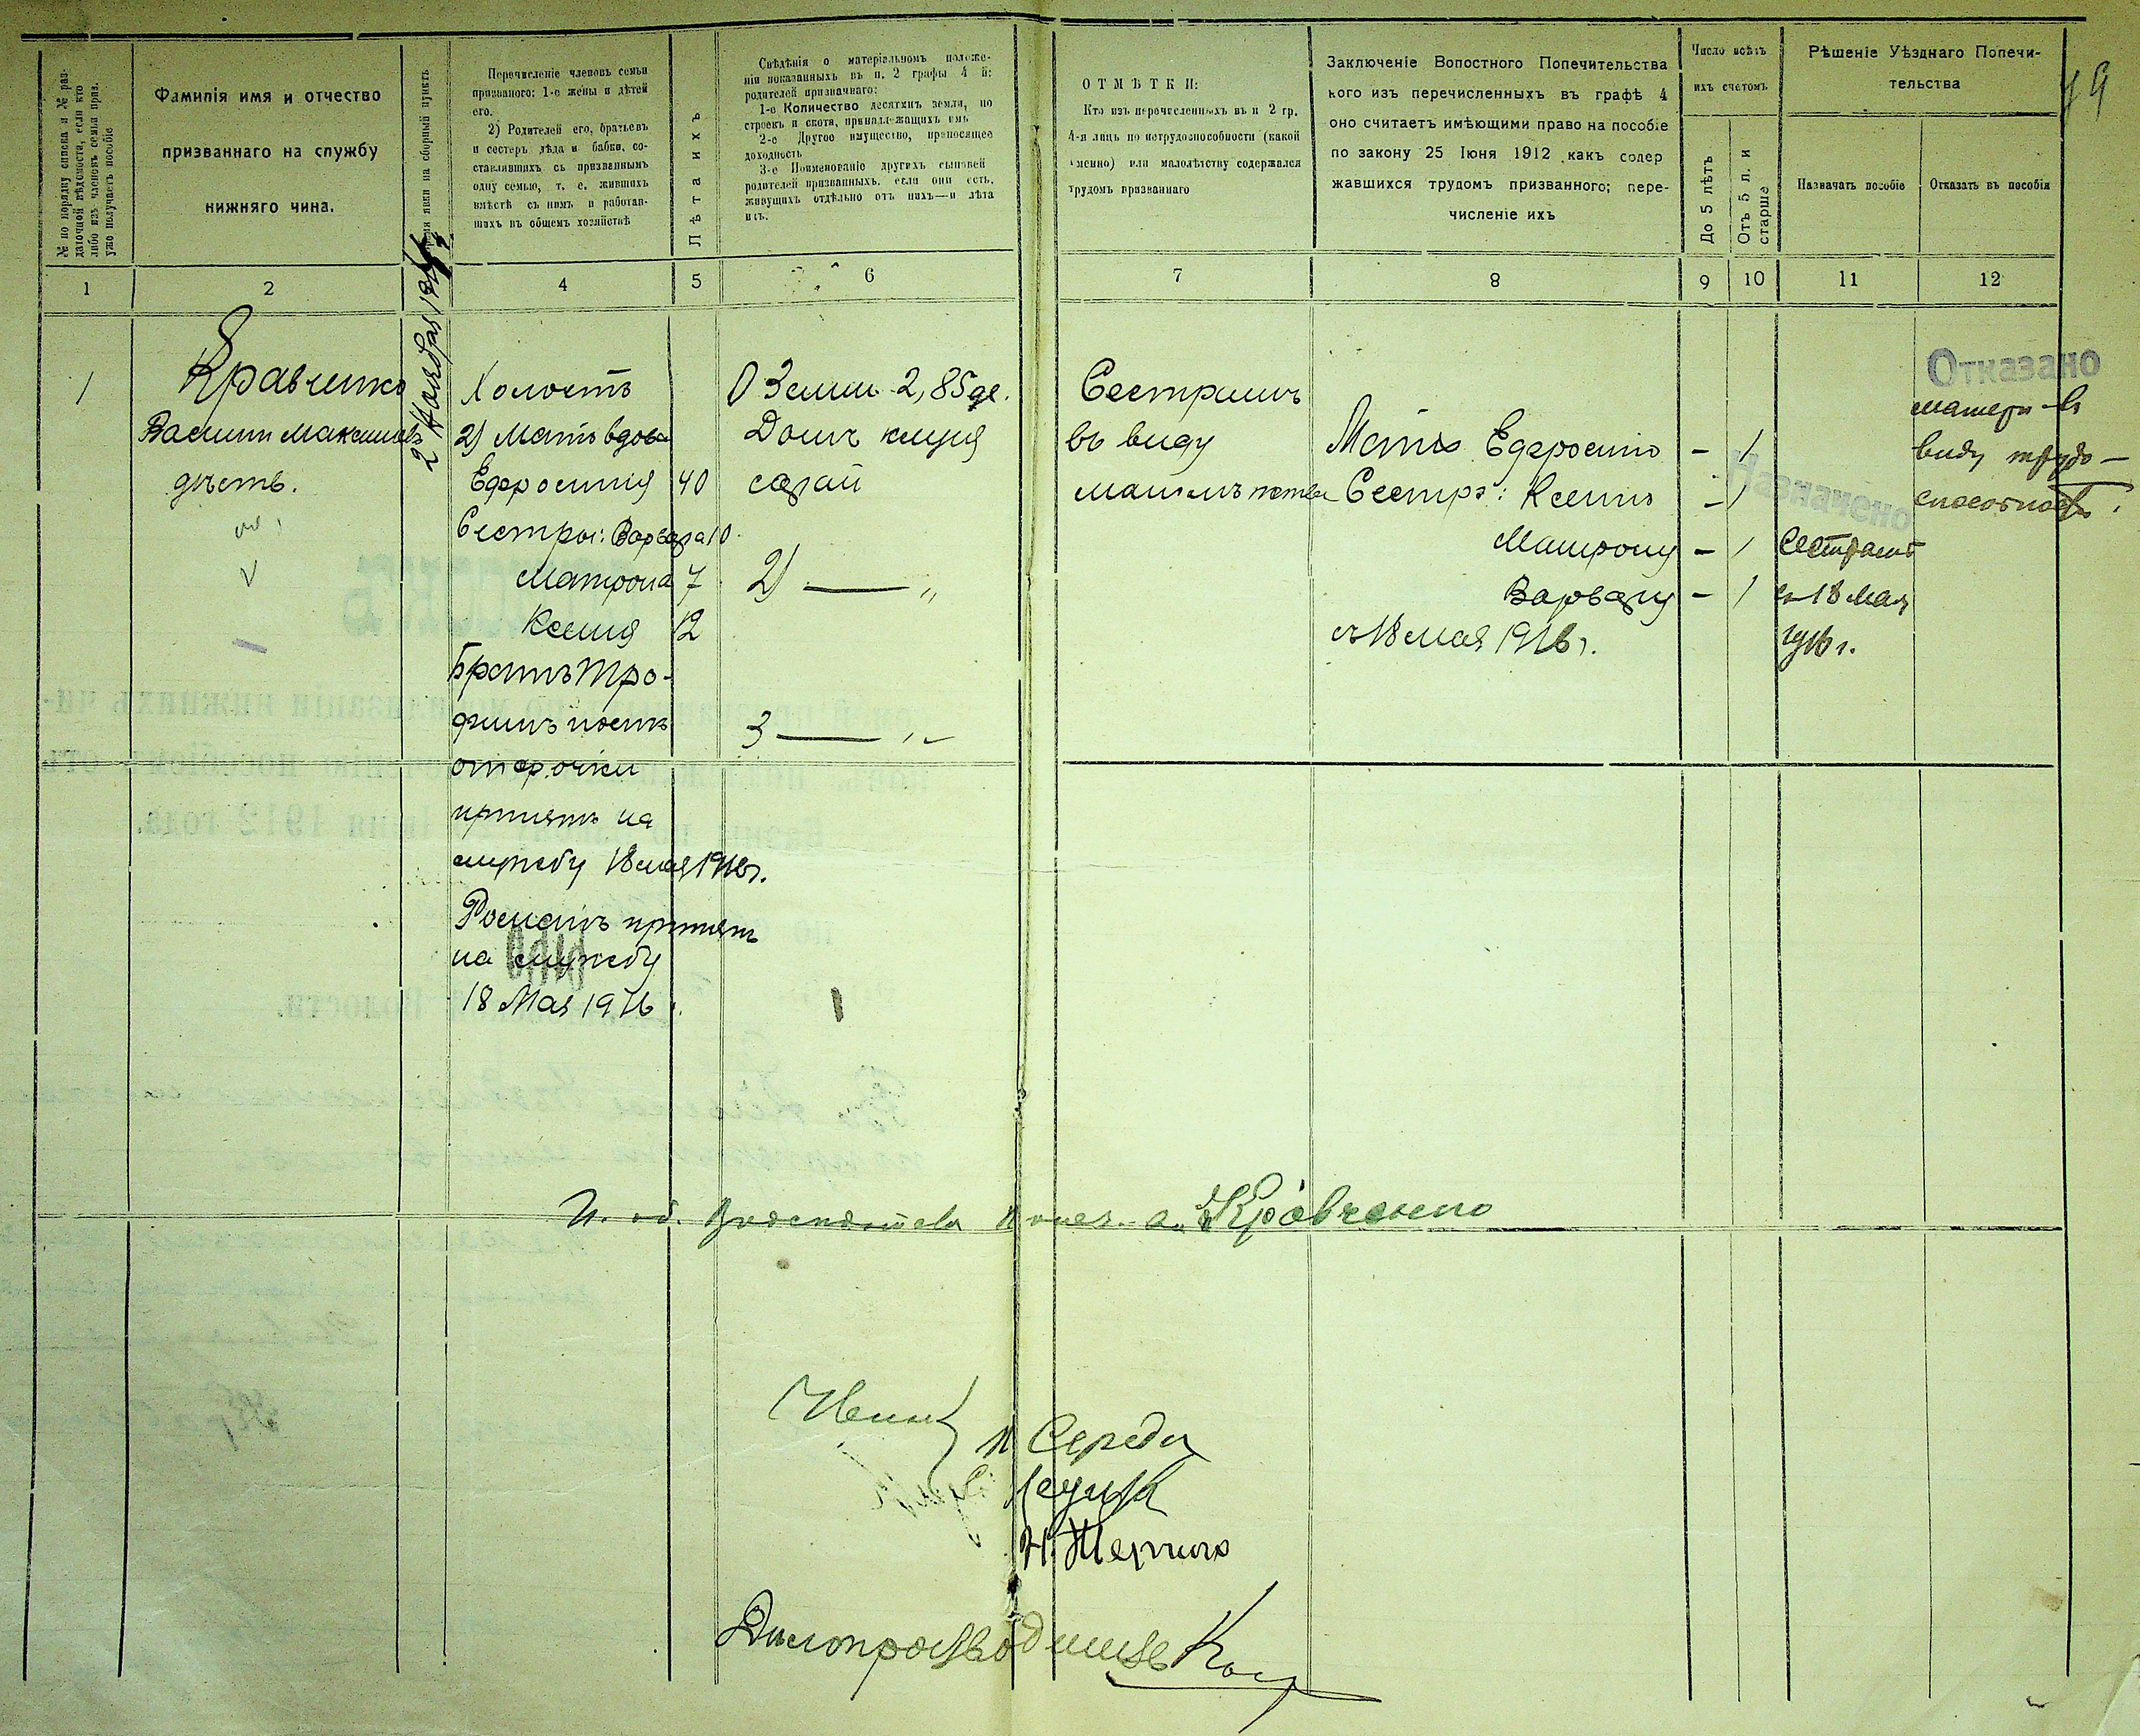 19
№ по порядку списка и № раз-
даточной вѣдомости, если кто
либо изъ членовъ семьи приз.
уже получаетъ пособіе
Фамилія имя и отчество
призваннаго на службу
нижняго чина.
явки на сборный пунктъ
Перечисленіе членовъ семьи
призваннаго: 1-е жены и дѣтей
его.
2) Родителей его, братьевъ
и сестеръ дѣда и бабки, со-
ставлявшихъ съ призваннымъ
одну семью, т. е. жившихъ
вмѣстѣ съ нимъ и работав-
шихъ въ общемъ хозяйствѣ
Лѣта ихъ
Свѣдѣнія о матеріальномъ положе-
ніи показанныхъ въ п. 2 графы 4 й:
родителей призваннаго:
1-е Количество десятинъ земли, по
строекъ и скота, принадлежащихъ имъ
2-е Другое имущество, приносящее
доходность
3-е Поименованіе другихъ сыновей
родителей призванныхъ. если они есть.
живущихъ отдѣльно отъ нихъ—и лѣта
ихъ.
ОТМѢТКИ:
Кто изъ перечисленныхъ въ п 2 гр.
4-я лицъ по нетрудоспособности (какой
именно) или малолѣтству содержался
трудомъ призваннаго
Заключеніе Волостного Попечительства
кого изъ перечисленныхъ въ графѣ 4
оно считаетъ имѣющими право на пособіе
по закону 25 Іюня 1912 какъ содер
жавшихся трудомъ призванного; пере-
численіе ихъ
Число всѣхъ
ихъ счетомъ
До 5 лѣтъ
Отъ 5 л. и
старше
Рѣшеніе Уѣзднаго Попечи-
тельства
Назначать пособіе
Отказать въ пособіи
1 2 4 5 6 7 8 9 10 11 12
1
Кравченко
Василий Максимовъ
2 Ноября
Холостъ
2) Мать вдова
Ефросинія 40
Сестры: Варвара 10
Матрона 7
Ксенія 12
Братъ Тро-
фимъ послѣ
отсрочки
принятъ на
службу 18 мая 1916 г.
Романъ принятъ
на службу
18 Мая 1916 г.
1) Земли 2,85 де.
Домъ клуня
сарай
2) — "
3 — "
Сестрамъ
въ виду
малолѣтства
Мать Ефросинію – 1
Сестръ: Ксенію – 1
Матрону – 1
Варвару – 1
съ 18 мая 1916 г.
Назначено
Сестрамъ
с 18 мая
1916 г.
Отказано
матери въ
виду трудо-
способности.
И. об. Предсѣдателя Кравченко
Члены
Середа
Н.
Дѣлопроизводитель